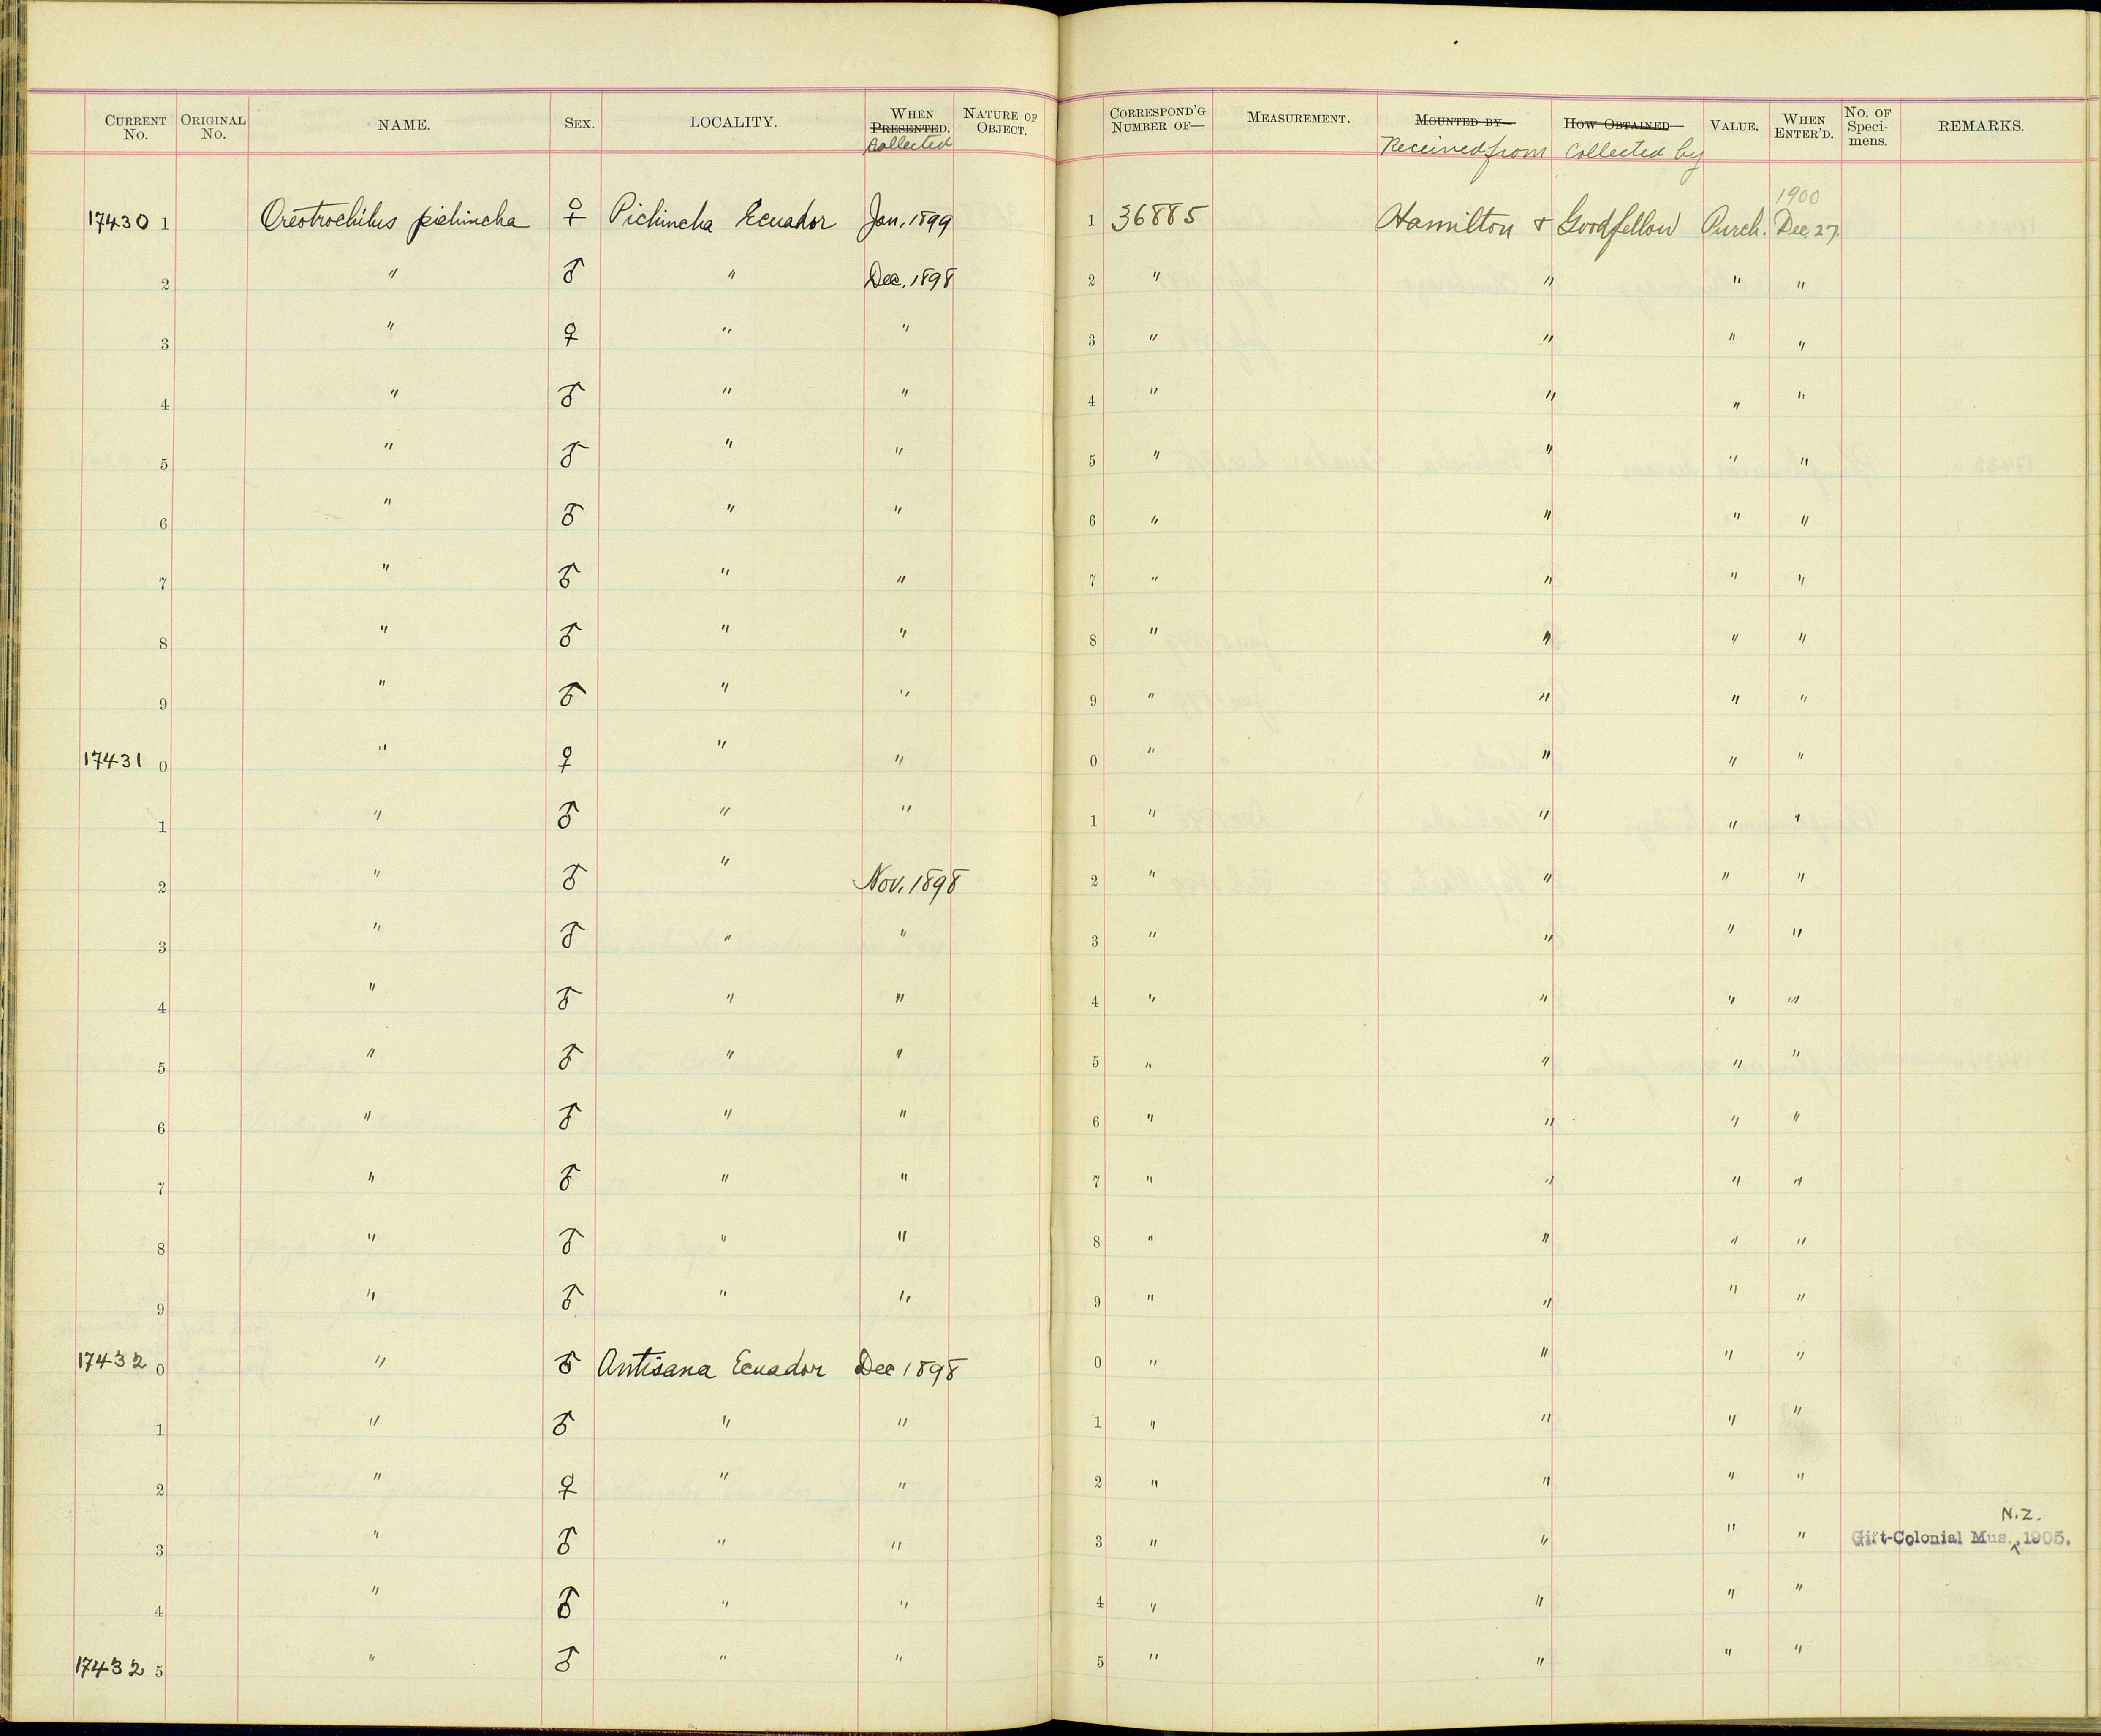 CURRENT No. ORIGINAL No. NAME. SEX. LOCALITY. WHEN PRESENTED. Collected NATURE OF OBJECT. CORRESPOND'G NUMBER OF— MEASUREMENT. MOUNTED BY— Received from HOW OBTAINED— Collected by VALUE. WHEN ENTER'D. No. OF Speci-mens. REMARKS.
1900
17430 1 Oreotrochilus pichincha ♀ Pichincha Ecuador Jan, 1899 1 36885 Hamilton & Goodfellow Purch. Dec 27
2 " ♂ " Dec, 1898 2 " " " "
3 " ♀ " " 3 " " " "
4 " ♂ " " 4 " " " "
5 " ♂ " " 5 " " " "
6 " ♂ " " 6 " " " "
7 " ♂ " " 7 " " " "
8 " ♂ " " 8 " " " "
9 " ♂ " " 9 " " " "
17431 0 " ♀ " " 0 " " " "
1 " ♂ " " 1 " " " "
2 " ♂ " Nov, 1898 2 " " " "
3 " ♂ " " 3 " " " "
4 " ♂ " " 4 " " " "
5 " ♂ " " 5 " " " "
6 " ♂ " " 6 " " " "
7 " ♂ " " 7 " " " "
8 " ♂ " " 8 " " " "
9 " ♂ " " 9 " " " "
17432 0 " ♂ Antisana Ecuador Dec 1898 0 " " " "
1 " ♂ " " 1 " " " "
2 " ♀ " " 2 " " " "
N.Z.
3 " ♂ " " 3 " " " " Gift-Colonial Mus. ^ 1905.
4 " ♂ " " 4 " " " "
17432 5 " ♂ " " 5 " " " "